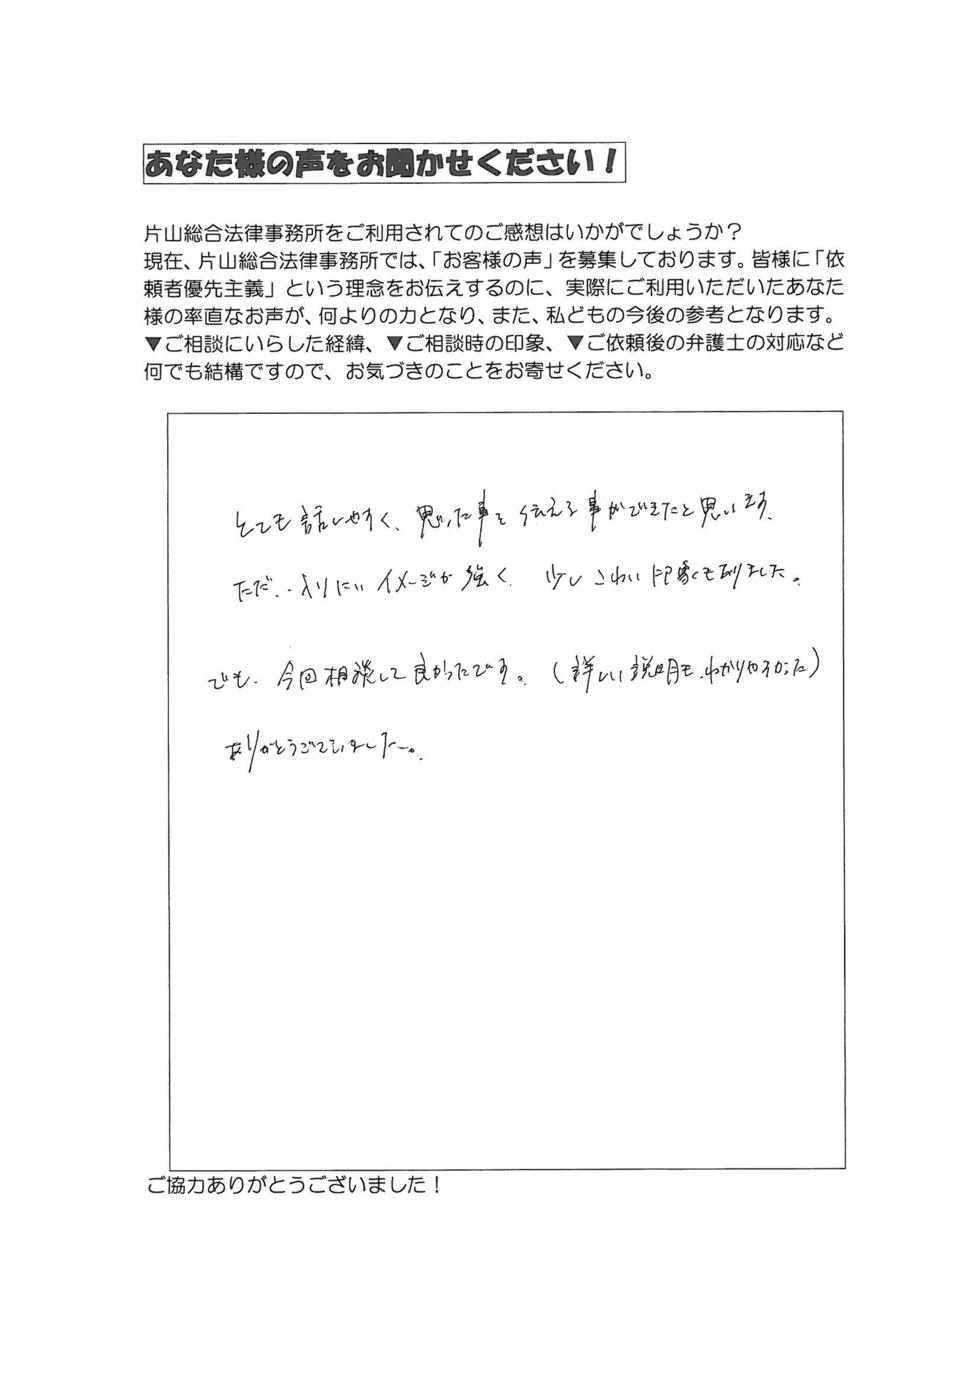 あなた様の声をお聞かせください！
片山総合法律事務所をご利用されてのご感想はいかがでしょうか？
現在、片山総合法律事務所では、「お客様の声」を募集しております。皆様に「依
頼者優先主義」という理念をお伝えするのに、実際にご利用いただいたあなた
様の率直なお声が、何よりの力となり、また、私どもの今後の参考となります。
▼ご相談にいらした経緯、▼ご相談時の印象、▼ご依頼後の弁護士の対応など
何でも結構ですので、お気づきのことをお寄せください。
とても話しやすく、思った事を伝える事ができたと思います。
ただ、入りにくいイメージが強く、少しこわい印象もありました。
でも、今回相談して良かったです。（詳しい説明も、わかりやすかった）
ありがとうございました。
ご協力ありがとうございました！